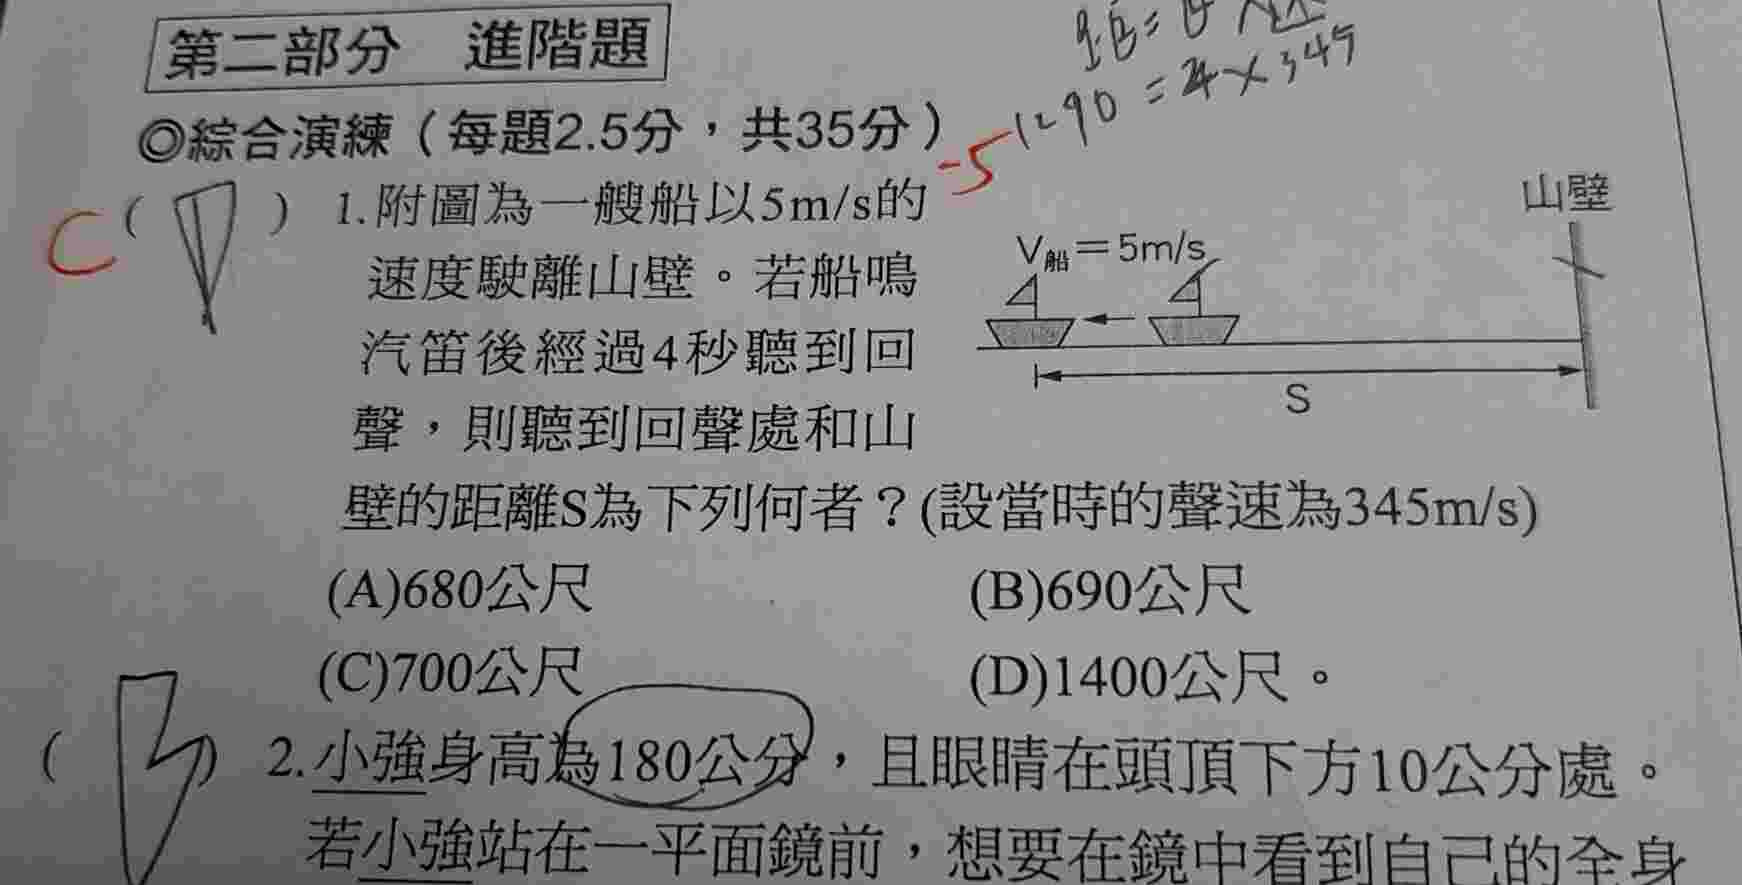 第二部分 進階題
◎綜合演練（每題2.5分，共35分）
-5
1290 = 4 × 345
C
( ) 1.附圖為一艘船以5m/s的
速度駛離山壁。若船鳴
汽笛後經過4秒聽到回
聲，則聽到回聲處和山
壁的距離S為下列何者？(設當時的聲速為345m/s)
山壁
V船＝5m/s
S
(A)680公尺 (B)690公尺
(C)700公尺 (D)1400公尺。
( ) 2.小強身高為180公分，且眼睛在頭頂下方10公分處。
若小強站在一平面鏡前，想要在鏡中看到自己的全身